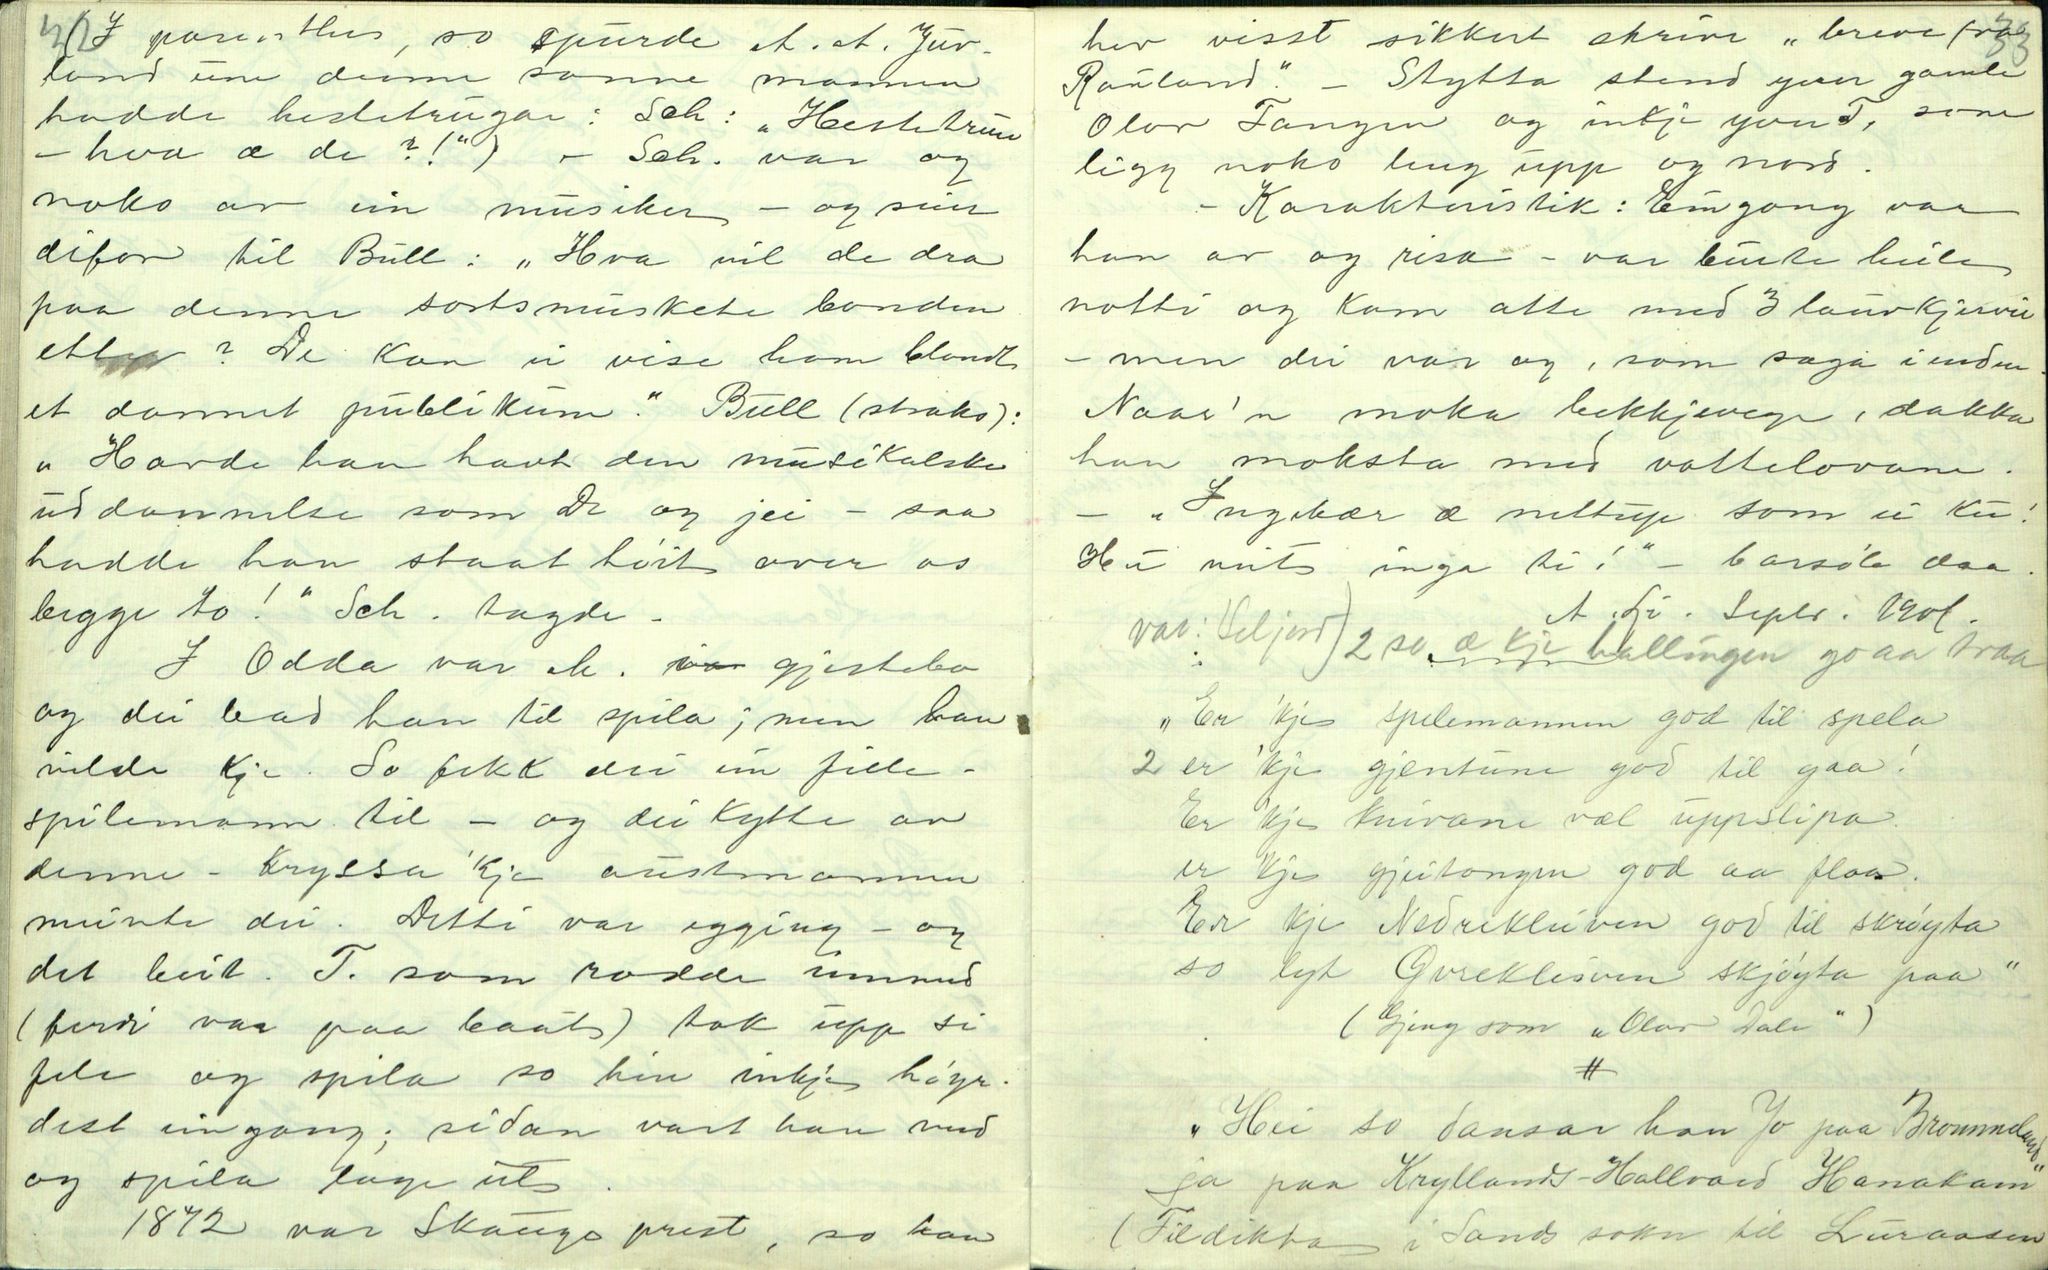 32
(I parenthes, so spurde A. A. Juv-
land um denne sanne mannen
hadde hestetrugar: Sch: "Hestetruer
- hva æ de?!") - Sch. var og
noko av ein musiker - og seier
difor til Bull: "Hva vil de dra
paa denne sortsmuskete bonden
etter? De kan ei vise ham blandt
et dannet publikum." Bull (straks):
"Havde han havt den musikalske
uddannelse som De og jei - saa
hadde han staat höit over os
begge to!" Sch. tagde.
I Odda var M. gjestebo
og dei bad han til spila; men han
vilde kje. So fekk dei ein fille-
spilemann til - og dei kytte av
denne - Kryssa 'kje austmannen
meinte dei. Detti var egging - og
det beit. T. som rodde ummed
(ferdi var paa baat) tok upp si
fele og spila so hin inkje höyr-
dest eingong; sidan vart han med
og spila lage ut.
1872 var Skauge prest, so han
33
hev visst sikkert skrive "breve fra
Rauland". - Stytta stend yver gamle
Olav Tangen og inkje yver T. som
ligg noko leng upp og nord.
- Karakteristik: Eingong var
han av og risa - var burte heile
notti og kom atte med 3 lauvkjervi
- men dei var og, som saga i enden.
Naar'n moka bekkjevege, dakka
han moksta med vattelovane.
- "Ingebær æ nettup som ei ku!
Hu veit inga ti!" - barsöle daa.
A. Li. Septr. 1901.
var: (Seljord) 2 so æ kje hallingen go aa traa
"Er 'kje spelemannen god til spela
2 er 'kje gjentune god til gaa!
Er 'kje knivane væl uppslipa
er 'kje gjeitongen god aa flaa.
Er kje Nedrekleiven god til skröyta
so lyt Øvrekleiven skjöyta paa"
(Gjeng som "Olav Dale")
#
"Hei so dansar han Jo paa Brommeland
ja paa Kryllands-Hallvard Hanakam"
(Tildikta i Sands sokn til Luraasen